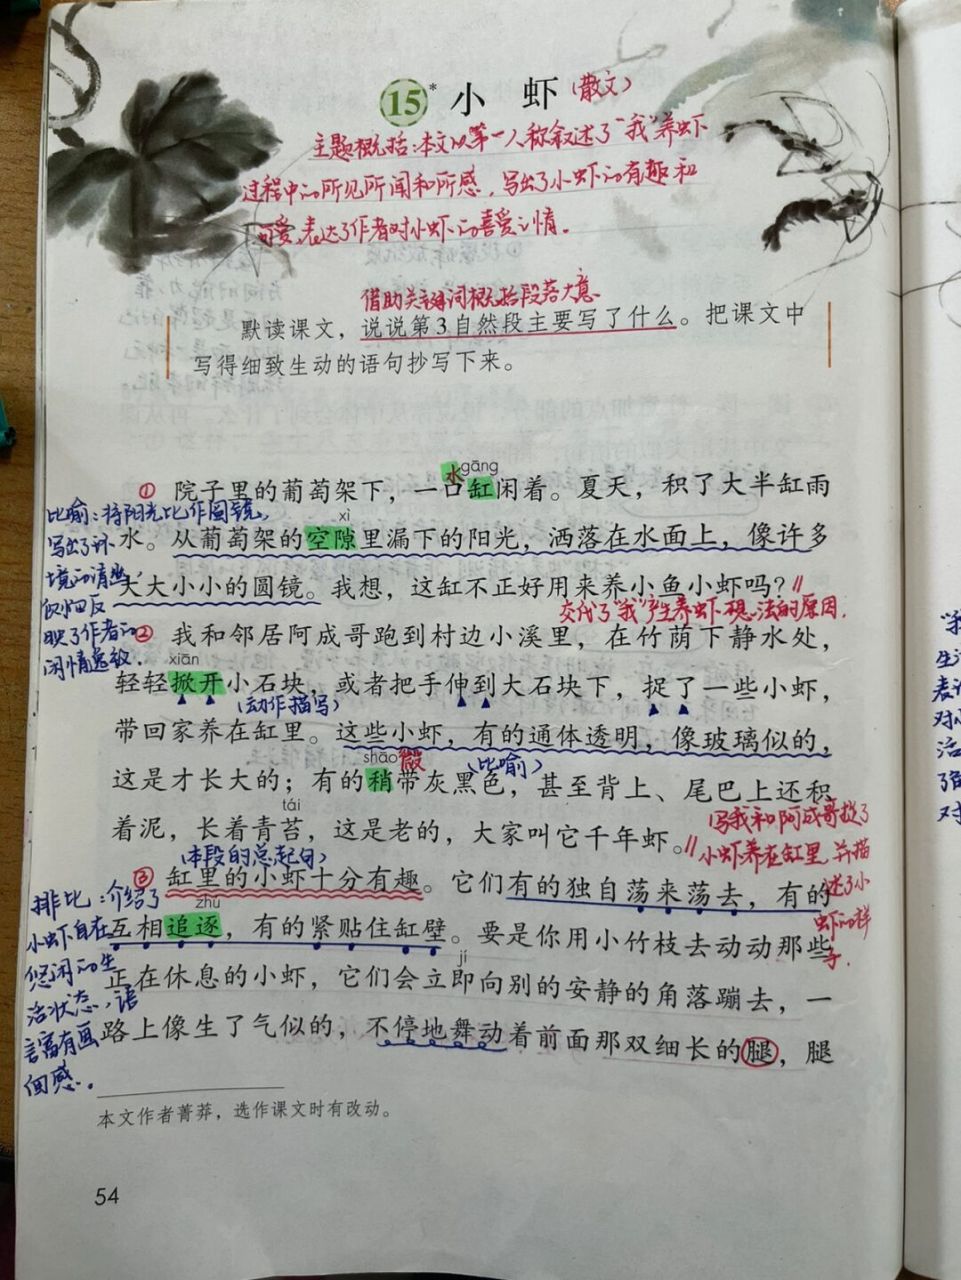 15* 小虾 (散文)
主题概括:本文以第一人称叙述了“我”养虾
过程中的所见所闻和所感,写出了小虾的有趣和
可爱,表达了作者对小虾的喜爱之情。
借助关键词概括段落大意
默读课文,说说第3自然段主要写了什么。把课文中
写得细致生动的语句抄写下来。
水 gāng
① 院子里的葡萄架下,一口缸闲着。夏天,积了大半缸雨
比喻:将阳光比作圆镜,
xì
水。从葡萄架的空隙里漏下的阳光,洒落在水面上,像许多
写出了环
境的清幽,
大大小小的圆镜。我想,这缸不正好用来养小鱼小虾吗?//
侧面反
交代了“我”产生养虾想法的原因.
映了作者的
② 我和邻居阿成哥跑到村边小溪里,在竹荫下静水处,
闲情逸致.
xiān
轻轻掀开小石块,或者把手伸到大石块下,捉了一些小虾,
(动作描写)
带回家养在缸里。这些小虾,有的通体透明,像玻璃似的,
shāo 微 (比喻)
这是才长大的;有的稍带灰黑色,甚至背上、尾巴上还积
tái
着泥,长着青苔,这是老的,大家叫它千年虾。//
写我和阿成哥捉了
小虾养在缸里,并描
述了小
虾的样
子.
(本段的总起句)
③ 缸里的小虾十分有趣。它们有的独自荡来荡去,有的
排比:介绍了
zhú
互相追逐,有的紧贴住缸壁。要是你用小竹枝去动动那些
小虾自在
jí
正在休息的小虾,它们会立即向别的安静的角落蹦去,一
悠闲的生
活状态,语
路上像生了气似的,不停地舞动着前面那双细长的腿,腿
言富有画
面感.
本文作者菁莽,选作课文时有改动。
54
生
表
对
活
对